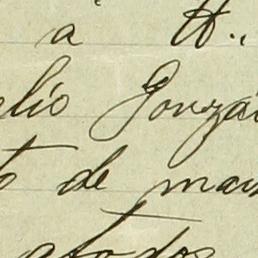 a H.,
elio Gonzá
to de mar
atodos